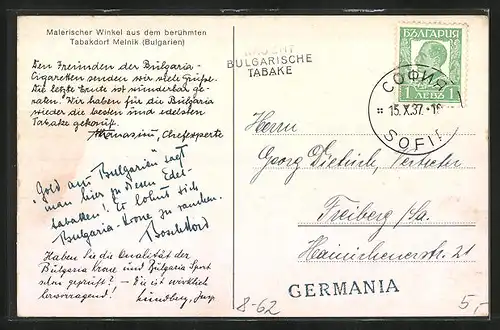 Malerischer Winkel aus dem berühmten
Tabakdorf Melnik (Bulgarien)
Den Freunden der Bulgaria-
Cigaretten senden wir viele Grüße.
Die letzte Ernte ist wunderbar ge-
raten. Wir haben für die Bulgaria
wieder die besten und edelsten
Tabake gekauft.
Athanasiu, Chefexperte
"Gold aus Bulgarien" sagt
man hier zu diesen Edel-
tabaken! Es lohnt sich
Bulgaria-Krone zu rauchen.
Haben Sie die Qualität der
Bulgaria Krone und Bulgaria Sport
schon geprüft? - Sie ist wirklich
hervorragend!
BULGARISCHE
TABAKE
БЪЛГАРИЯ
1 ЛЕВЪ 1
СОФИЯ
15.X.37
SOFI
Herrn
Georg Dietrich, Vertreter
Freiberg i/Sa.
Hainichenerstr. 21
GERMANIA
8-62
5,-